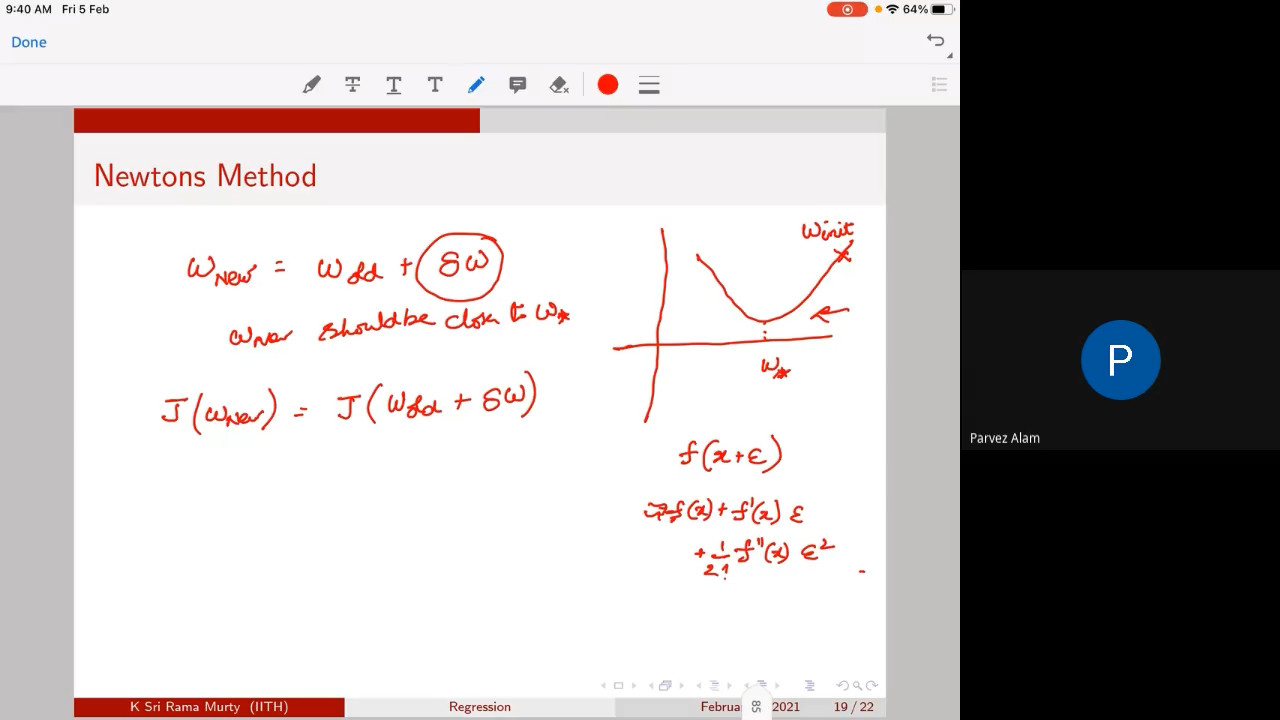 9:40 AM Fri 5 Feb
64%
Done
Newtons Method
w_New = w_old + δw
w_New should be close to w_*
J(w_New) = J(w_old + δw)
w_init
w_*
f(x+ε)
f(x) + f'(x) ε
+ 1/2! f''(x) ε²
P
Parvez Alam
K Sri Rama Murty (IITH)
Regression
2021
19 / 22
85